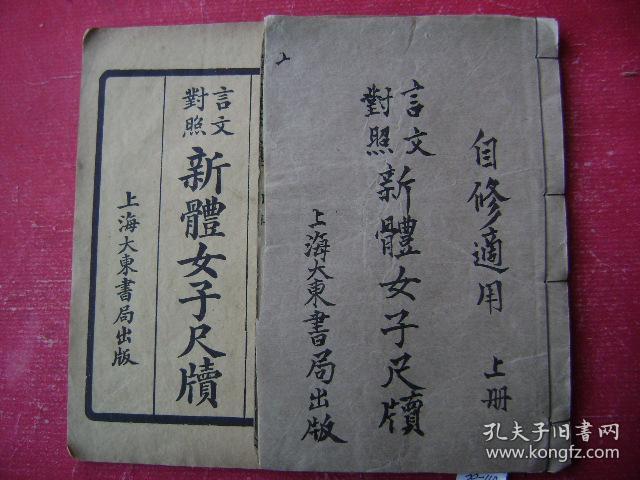 自修適用
上册
言文
對照
新體女子尺牘
上海大東書局出版
言文
對照
新體女子尺牘
上海大東書局出版
孔夫子旧书网
www.kongfz.com